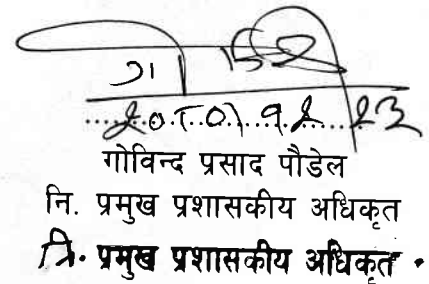 गोविन्द प्रसाद पौडेल
नि. प्रमुख प्रशासकीय अधिकृत
नि. प्रमुख प्रशासकीय अधिकृत